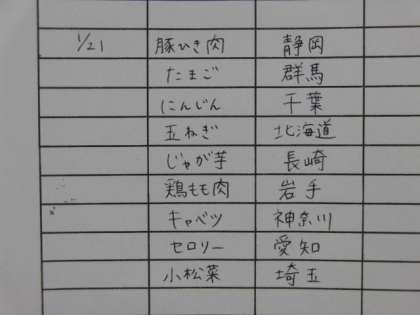 1/21 豚ひき肉 静岡
たまご 群馬
にんじん 千葉
玉ねぎ 北海道
じゃが芋 長崎
鶏もも肉 岩手
キャベツ 神奈川
セロリー 愛知
小松菜 埼玉